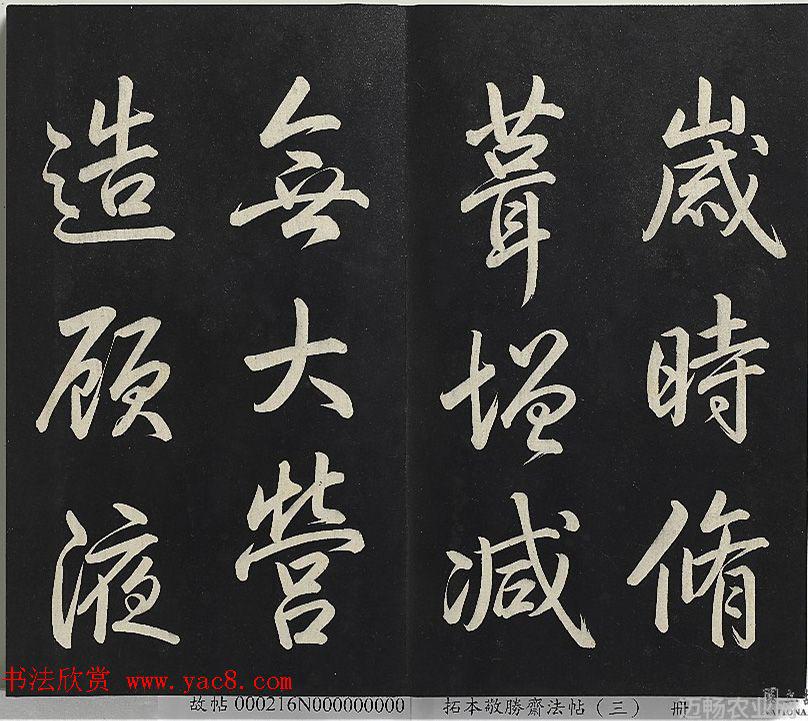 歲時脩
葺增減
無大營
造顧液
书法欣赏 www.yac8.com
故帖 000216N000000000
拓本敬勝齋法帖（三） 册
迈畅农业网